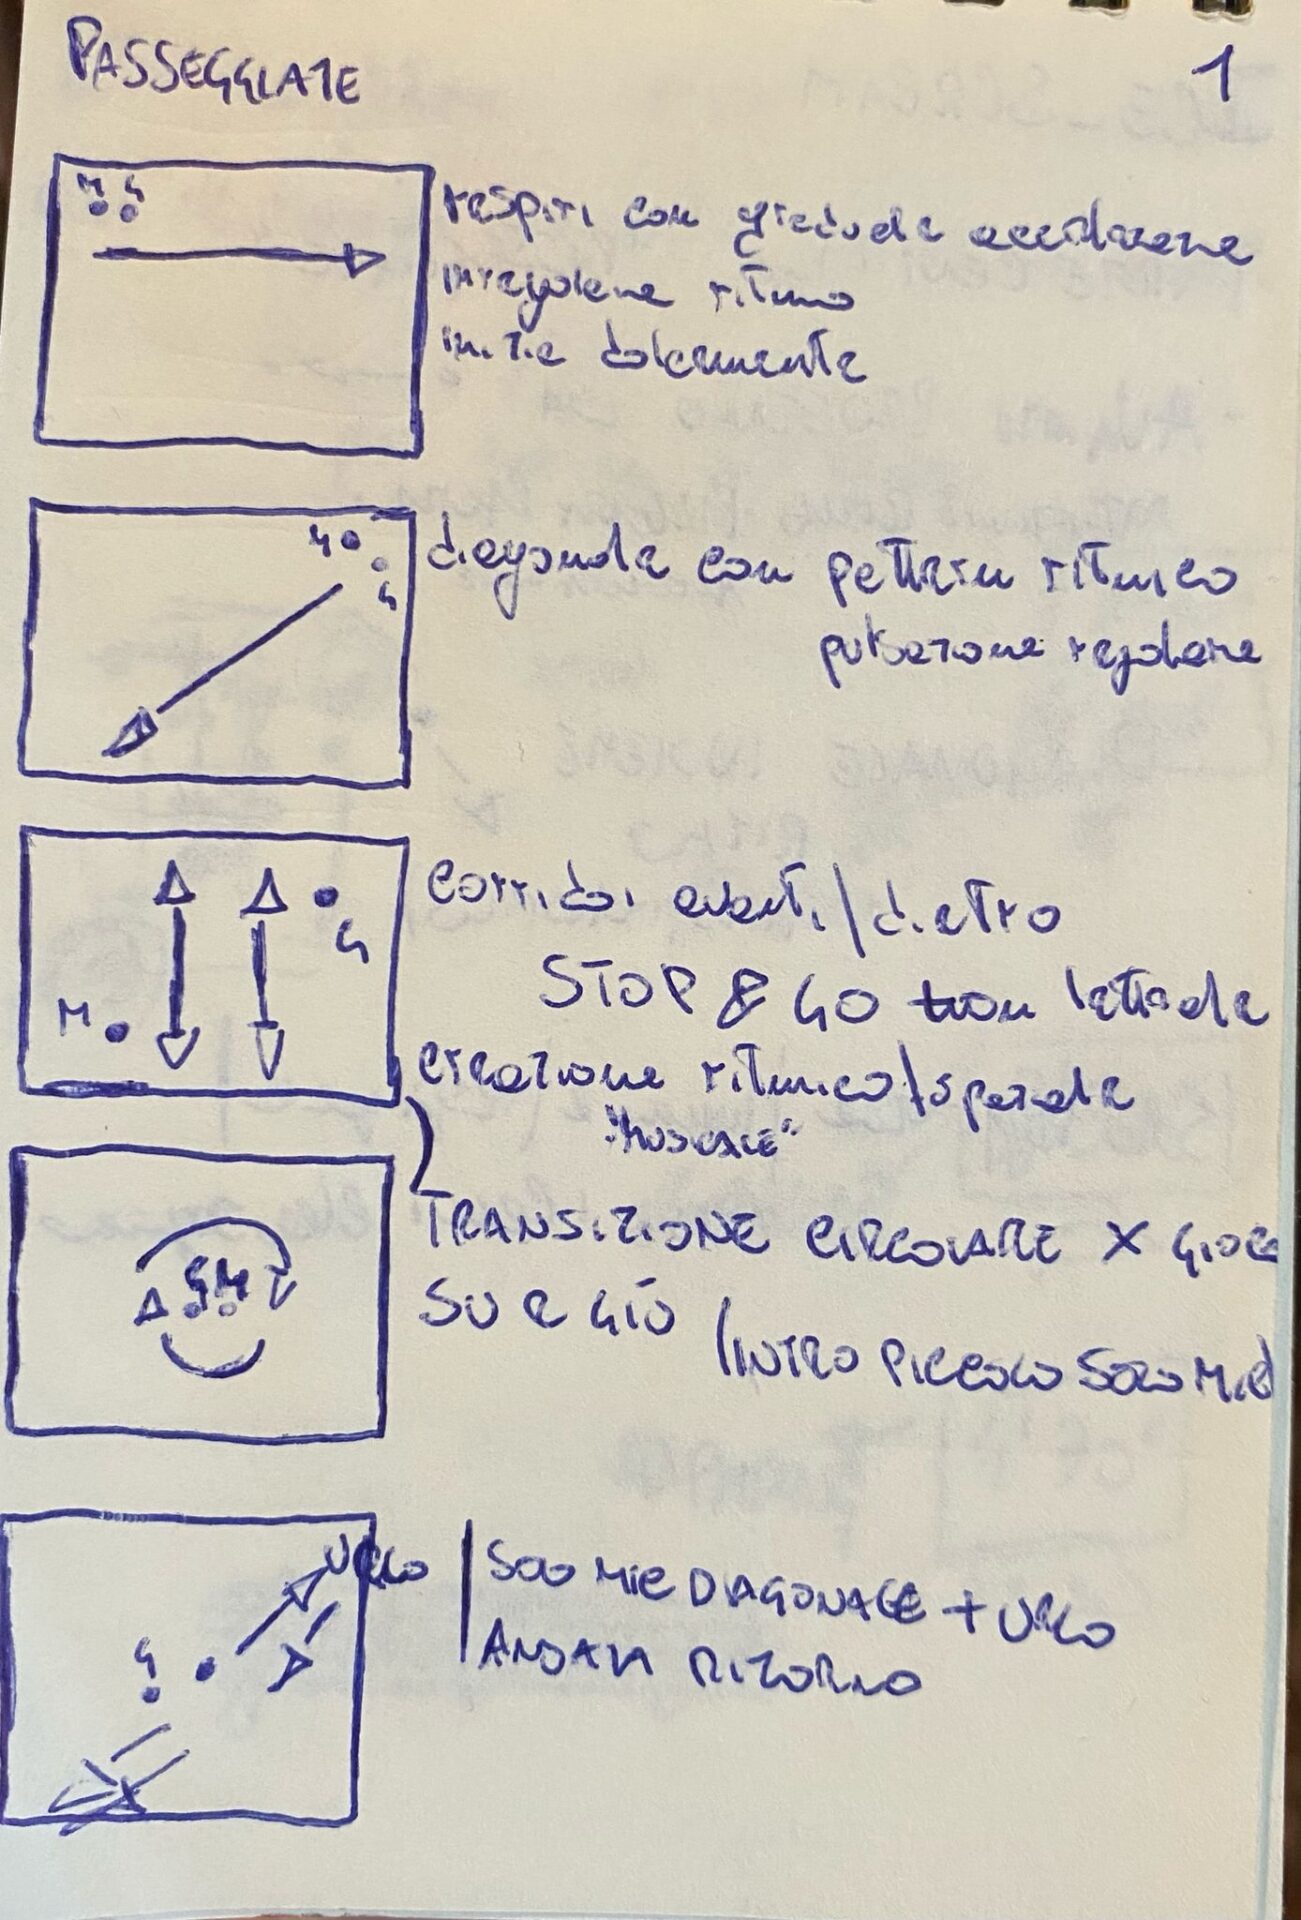 PASSEGGIATE
1
M G
respiri con graduale accelerazione
irregolare ritmo
inizia dolcemente
G
G
diagonale con pattern ritmico
pulsazione regolare
corridoi avanti/dietro
G
STOP & GO con
M
creazione ritmico/spaziale
"MUSICALE"
TRANSIZIONE CIRCOLARE X GIOCO
GM
SU E GIÙ
/INTRO PICCOLO SOLO MIC
URLO
SOLO MIC DIAGONALE + URLO
G
ANDATA RITORNO